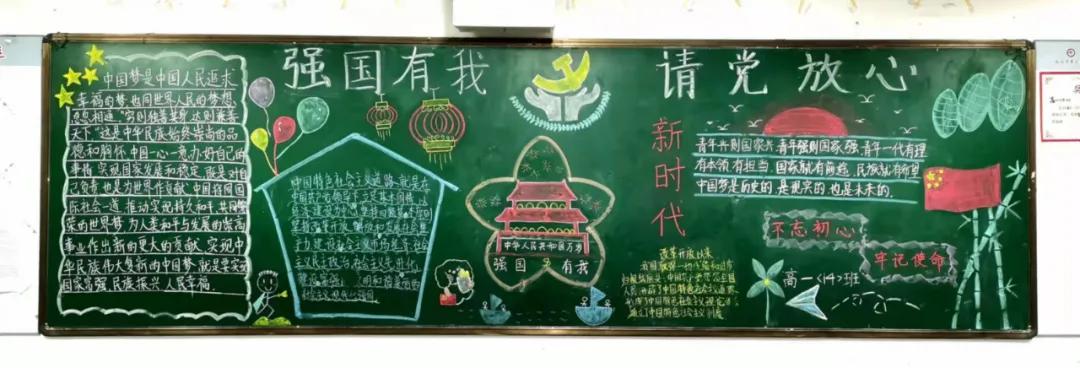 强国有我
请党放心
中国梦是中国人民追求
幸福的梦,也同世界人民的梦想
息息相通"穷则独善其身,达则兼善
天下"这是中华民族始终崇尚的品
德和胸怀.中国一心一意,办好自己的
事情,实现国家发展和稳定,既是对自
己负责,也是为世界作贡献.中国将同国
际社会一道,推动实现持久和平,共同繁
荣的世界梦,为人类和平与发展的崇高
事业作出新的更大的贡献.实现中
华民族伟大复新的中国梦,就是要实现
国家富强,民族振兴,人民幸福.
中国特色社会主义道路,就是在
中国共产党领导下,立足基本国情,以
经济建设为中心,坚持四项基本原则
坚持改革开放,解放和发展社会生
产力,建设社会主义市场经济,社会
主义民主政治,社会主义先进文化
中华人民共和国万岁
强国 有我
新时代
青年兴则国家兴,青年强则国家强.青年一代有理
有本领,有担当,国家就有前途,民族就有希望
中国梦是历史的,是现实的,也是未来的.
不忘初心
牢记使命
改革开放以来
高一<14>班